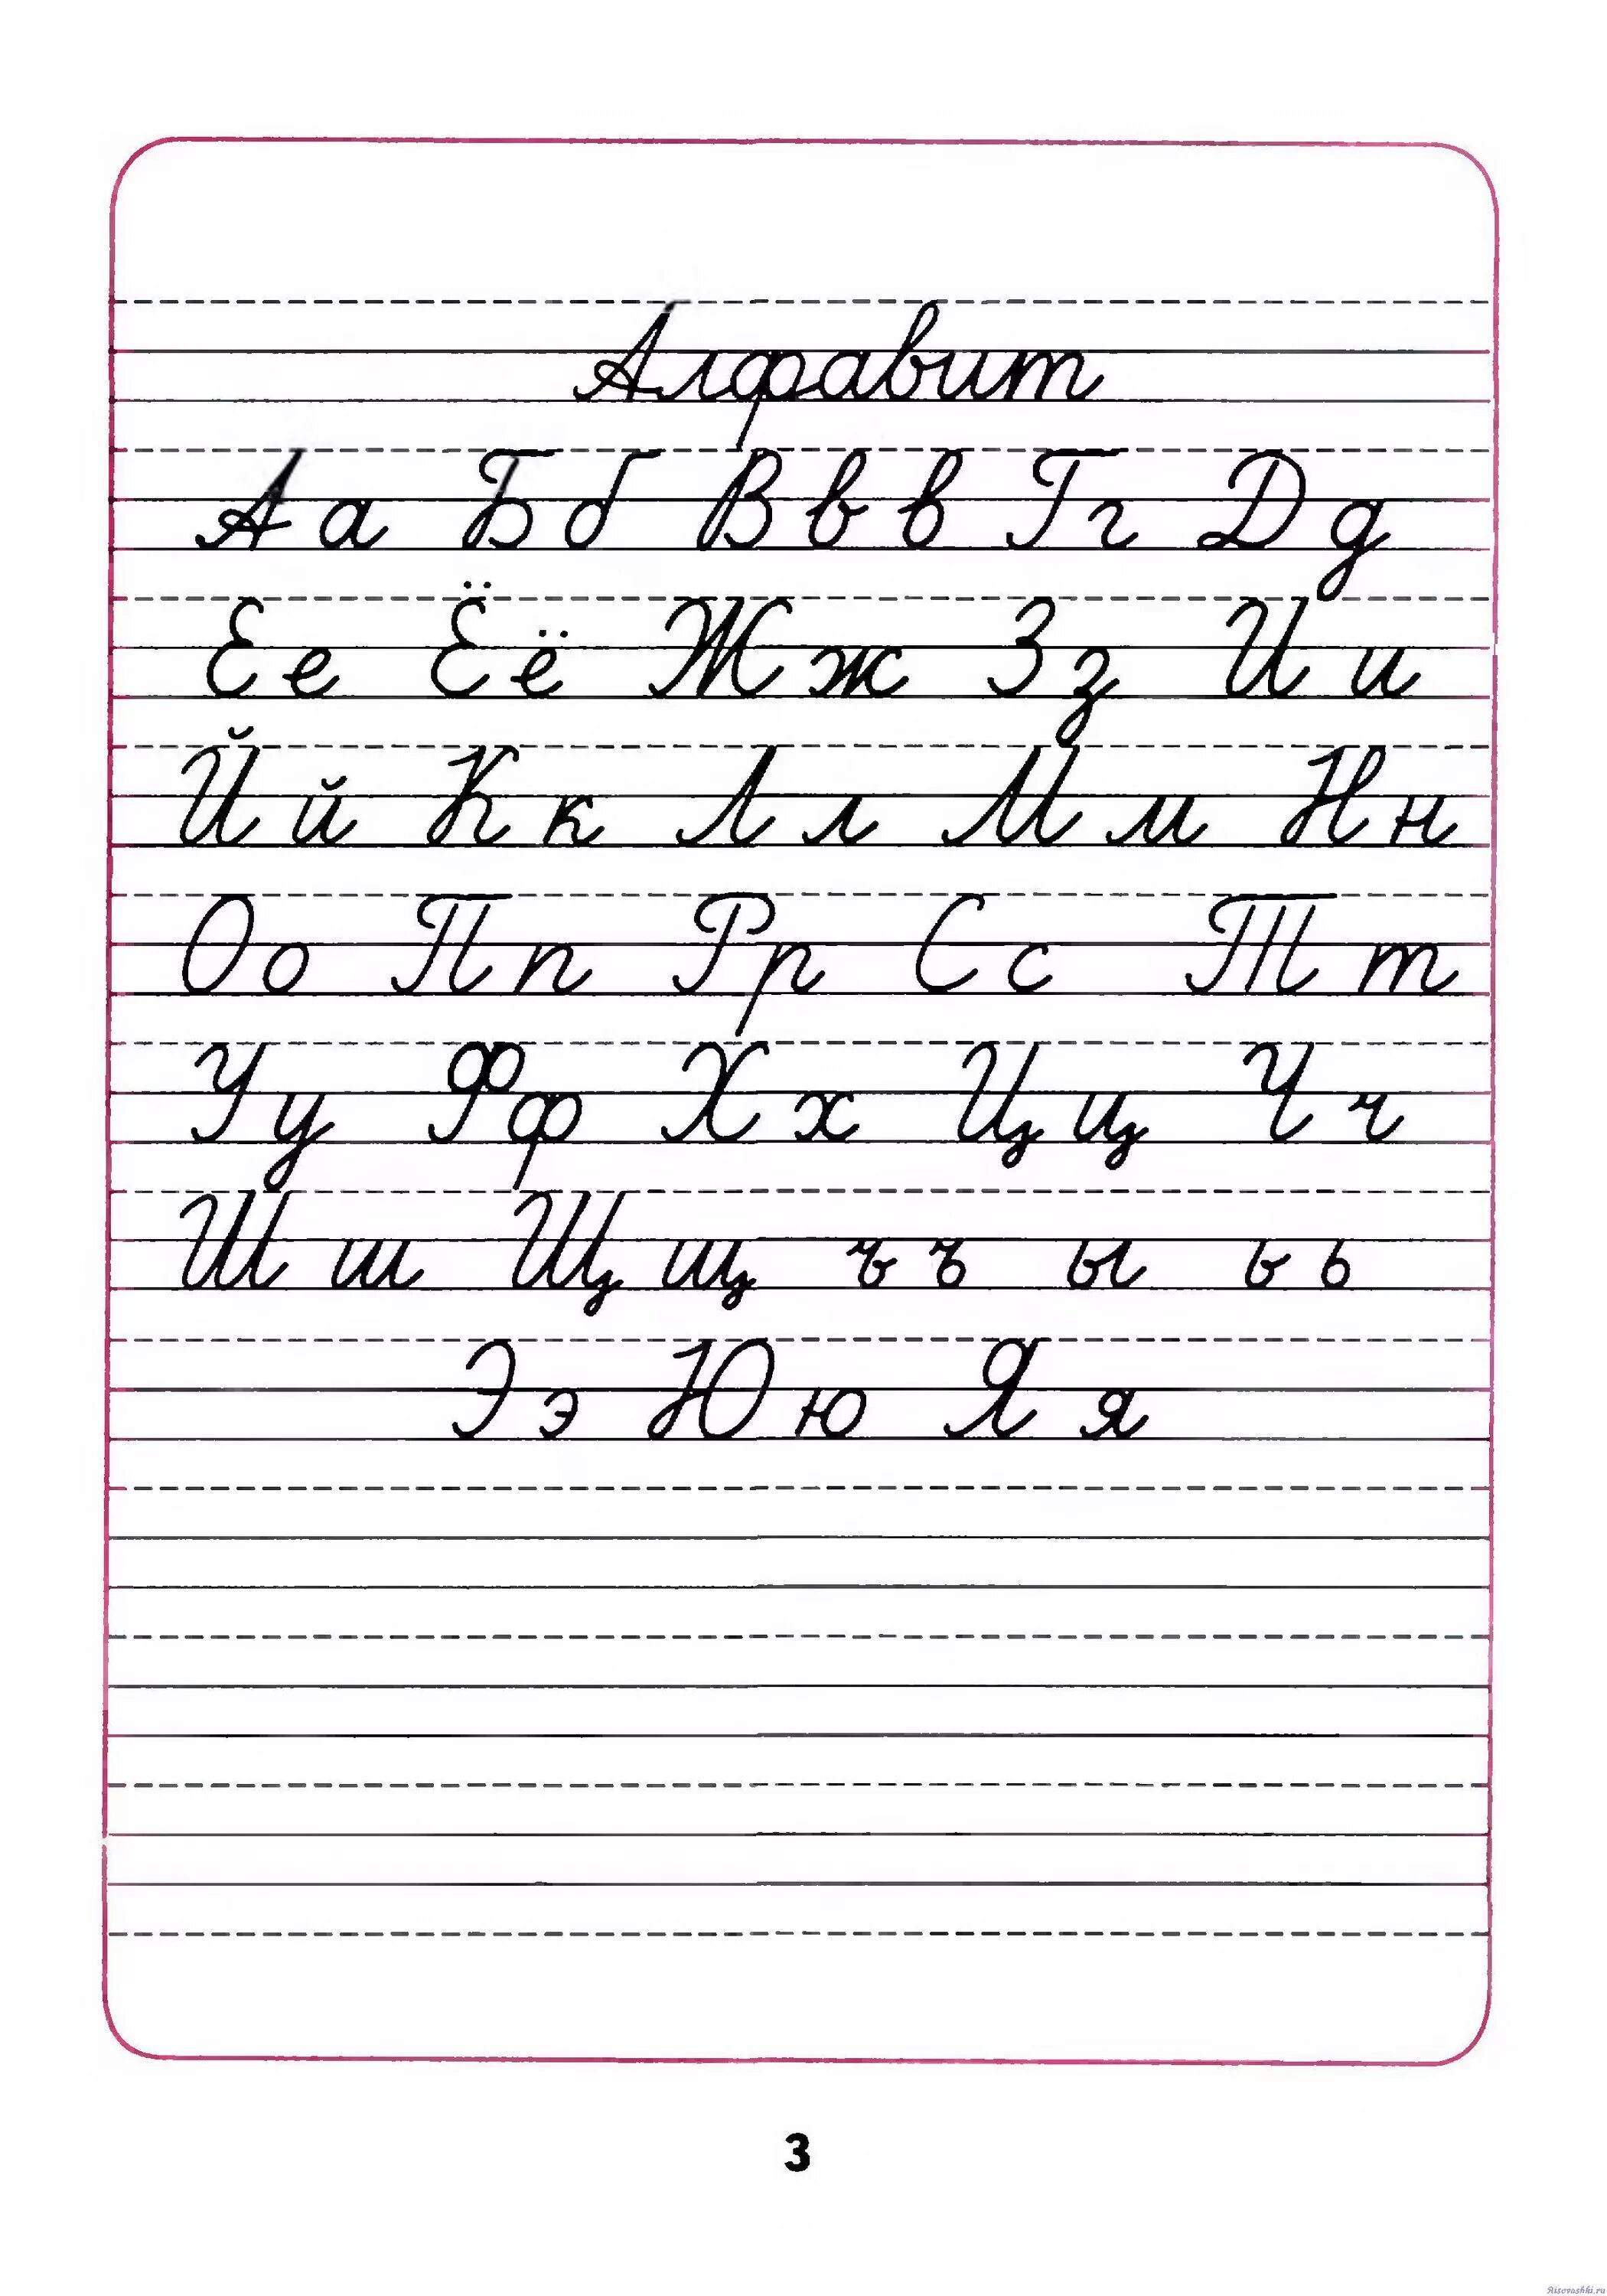 Алфавит
А а Б б В в в Г г Д д
Е е Ё ё Ж ж З з И и
Й й К к Л л М м Н н
О о П п Р р С с Т т
У у Ф ф Х х Ц ц Ч ч
Ш ш Щ щ ъ ъ ы ь ь
Э э Ю ю Я я
3
Risovashki.ru